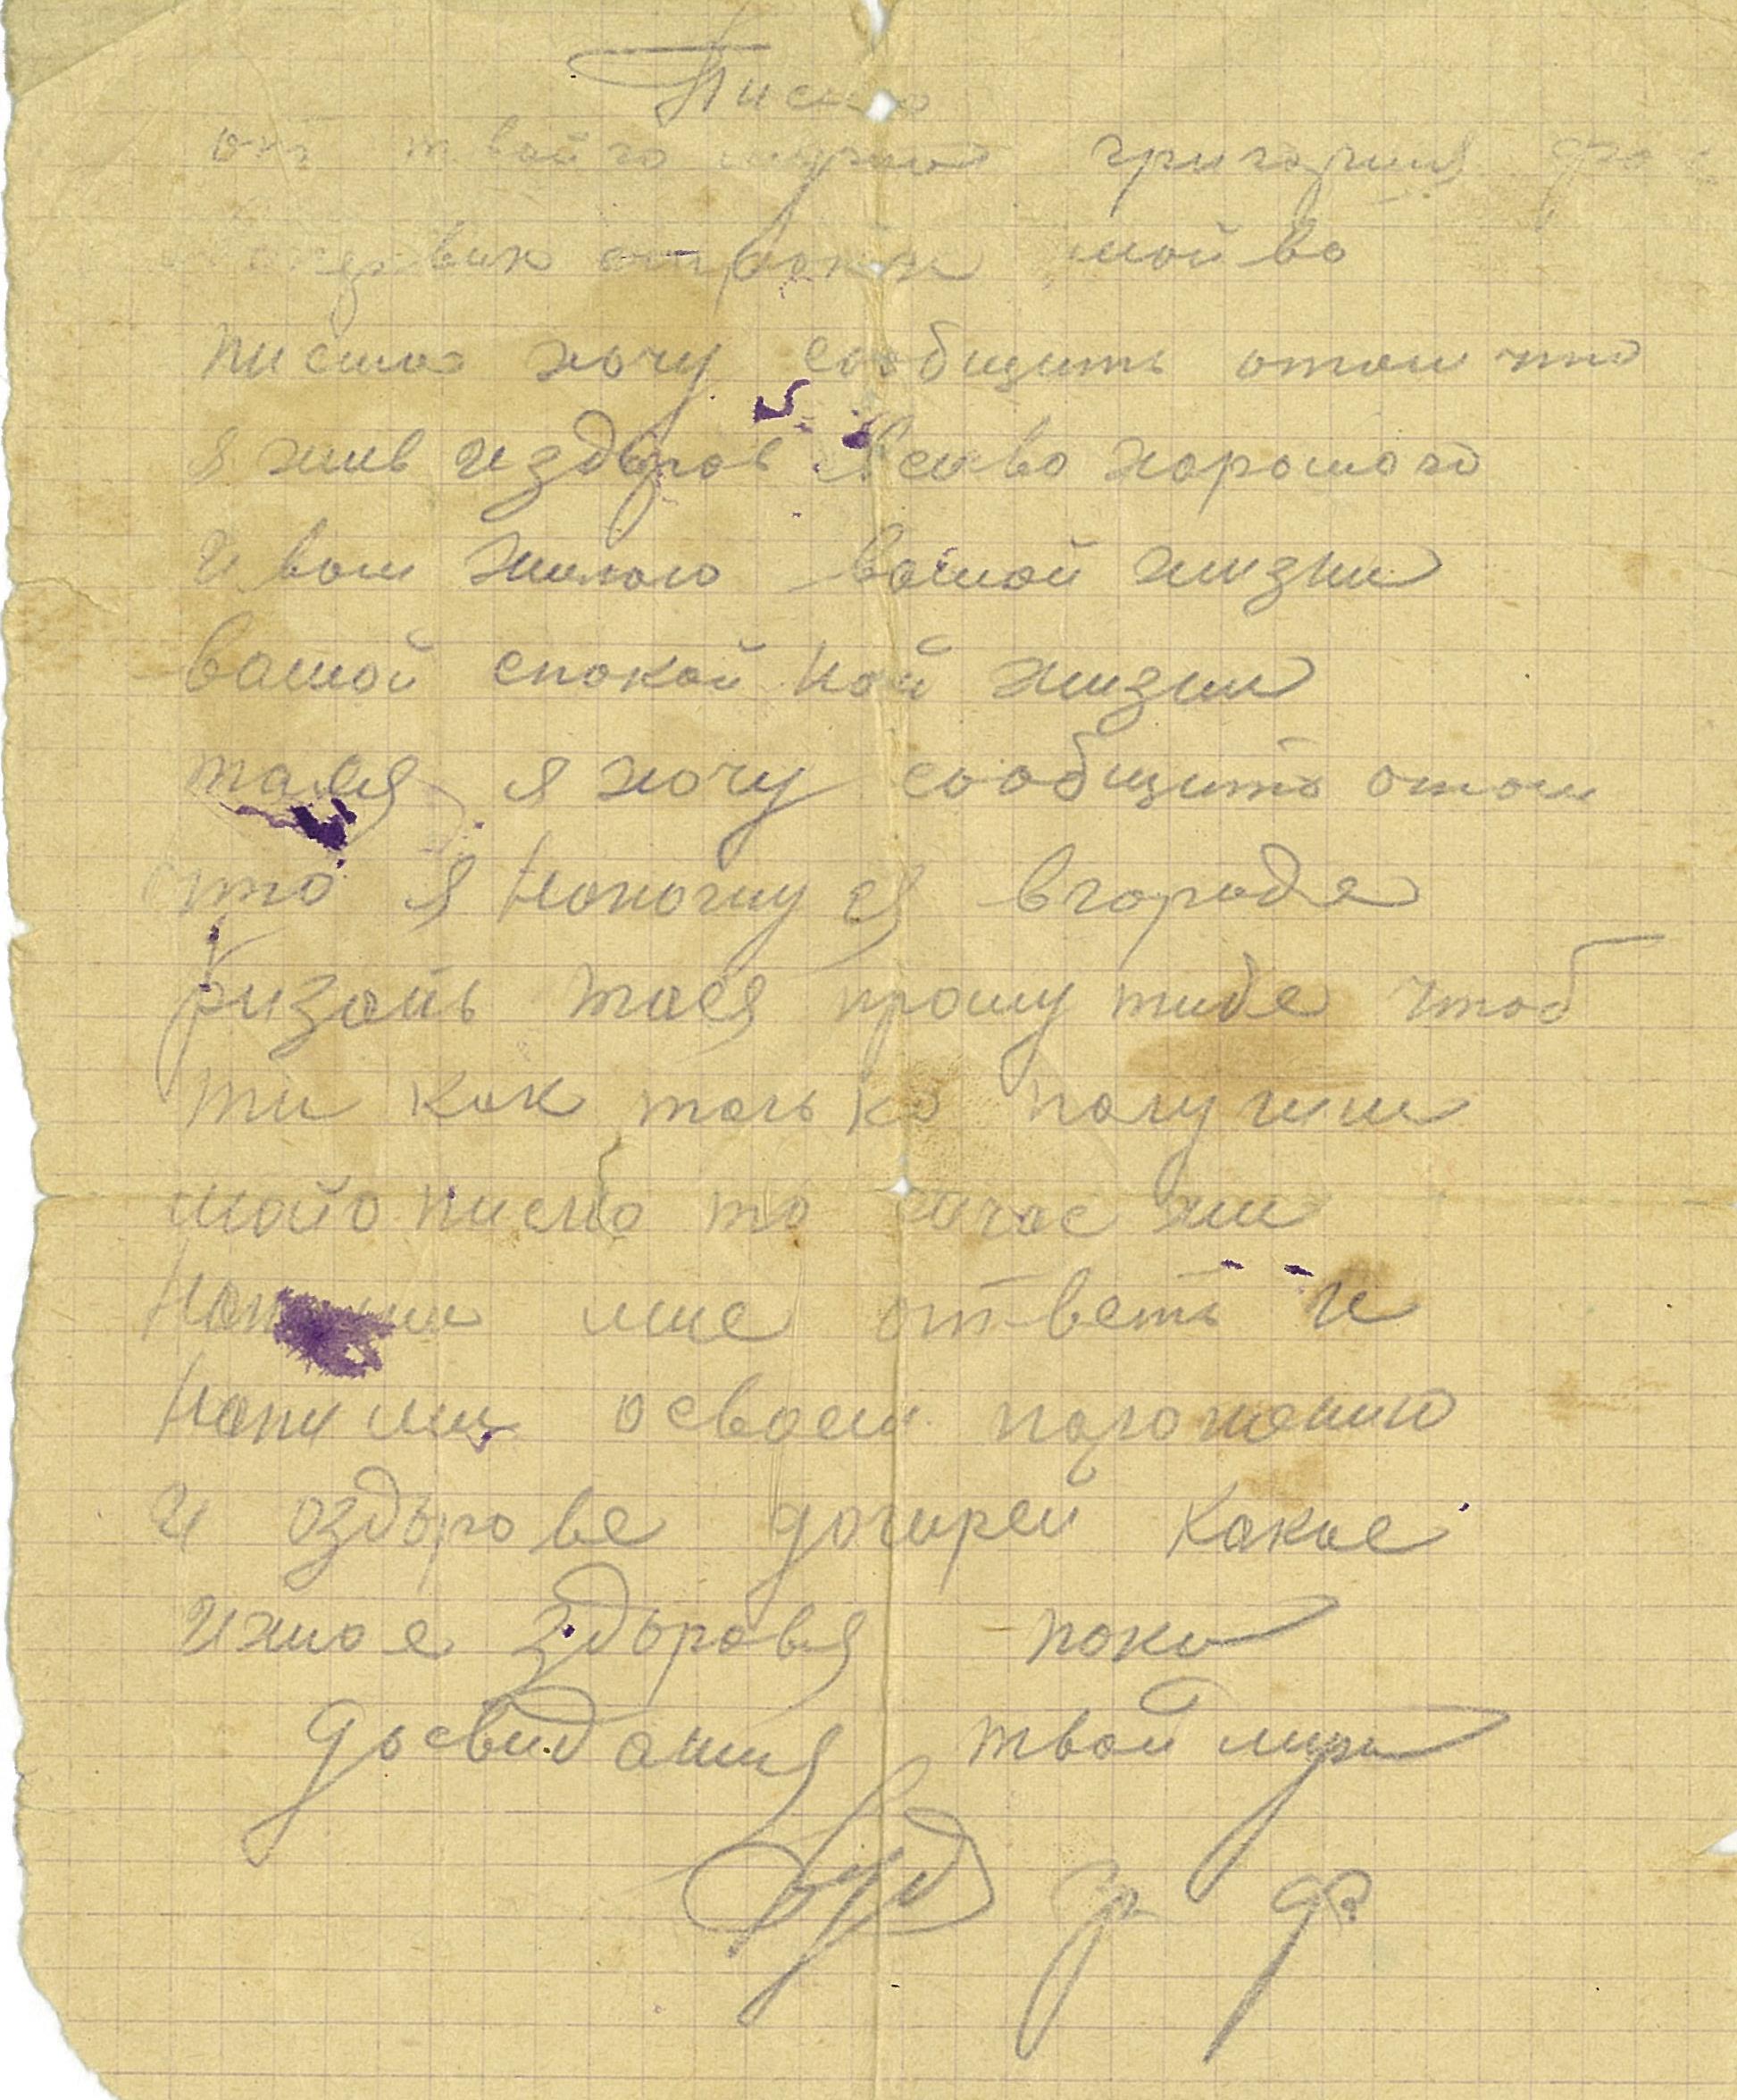 Письмо
от твайго мужа григория
мойво
писма хочу сообщить отом что
я жив издъров всиво хорошого
и вам жилаю вашой жизни
вашой спокойной жизни
тася я хочу сообщить отом
что я нахожуся вгороде
ризань тася прошу тибе чтоб
ти как только получиш
майо писмо то сичас жи
напиши мне ответь и
напиши осваем положению
и оздърове дочирей какое
ихное здъровя пока
досвидания твой муж
гр др